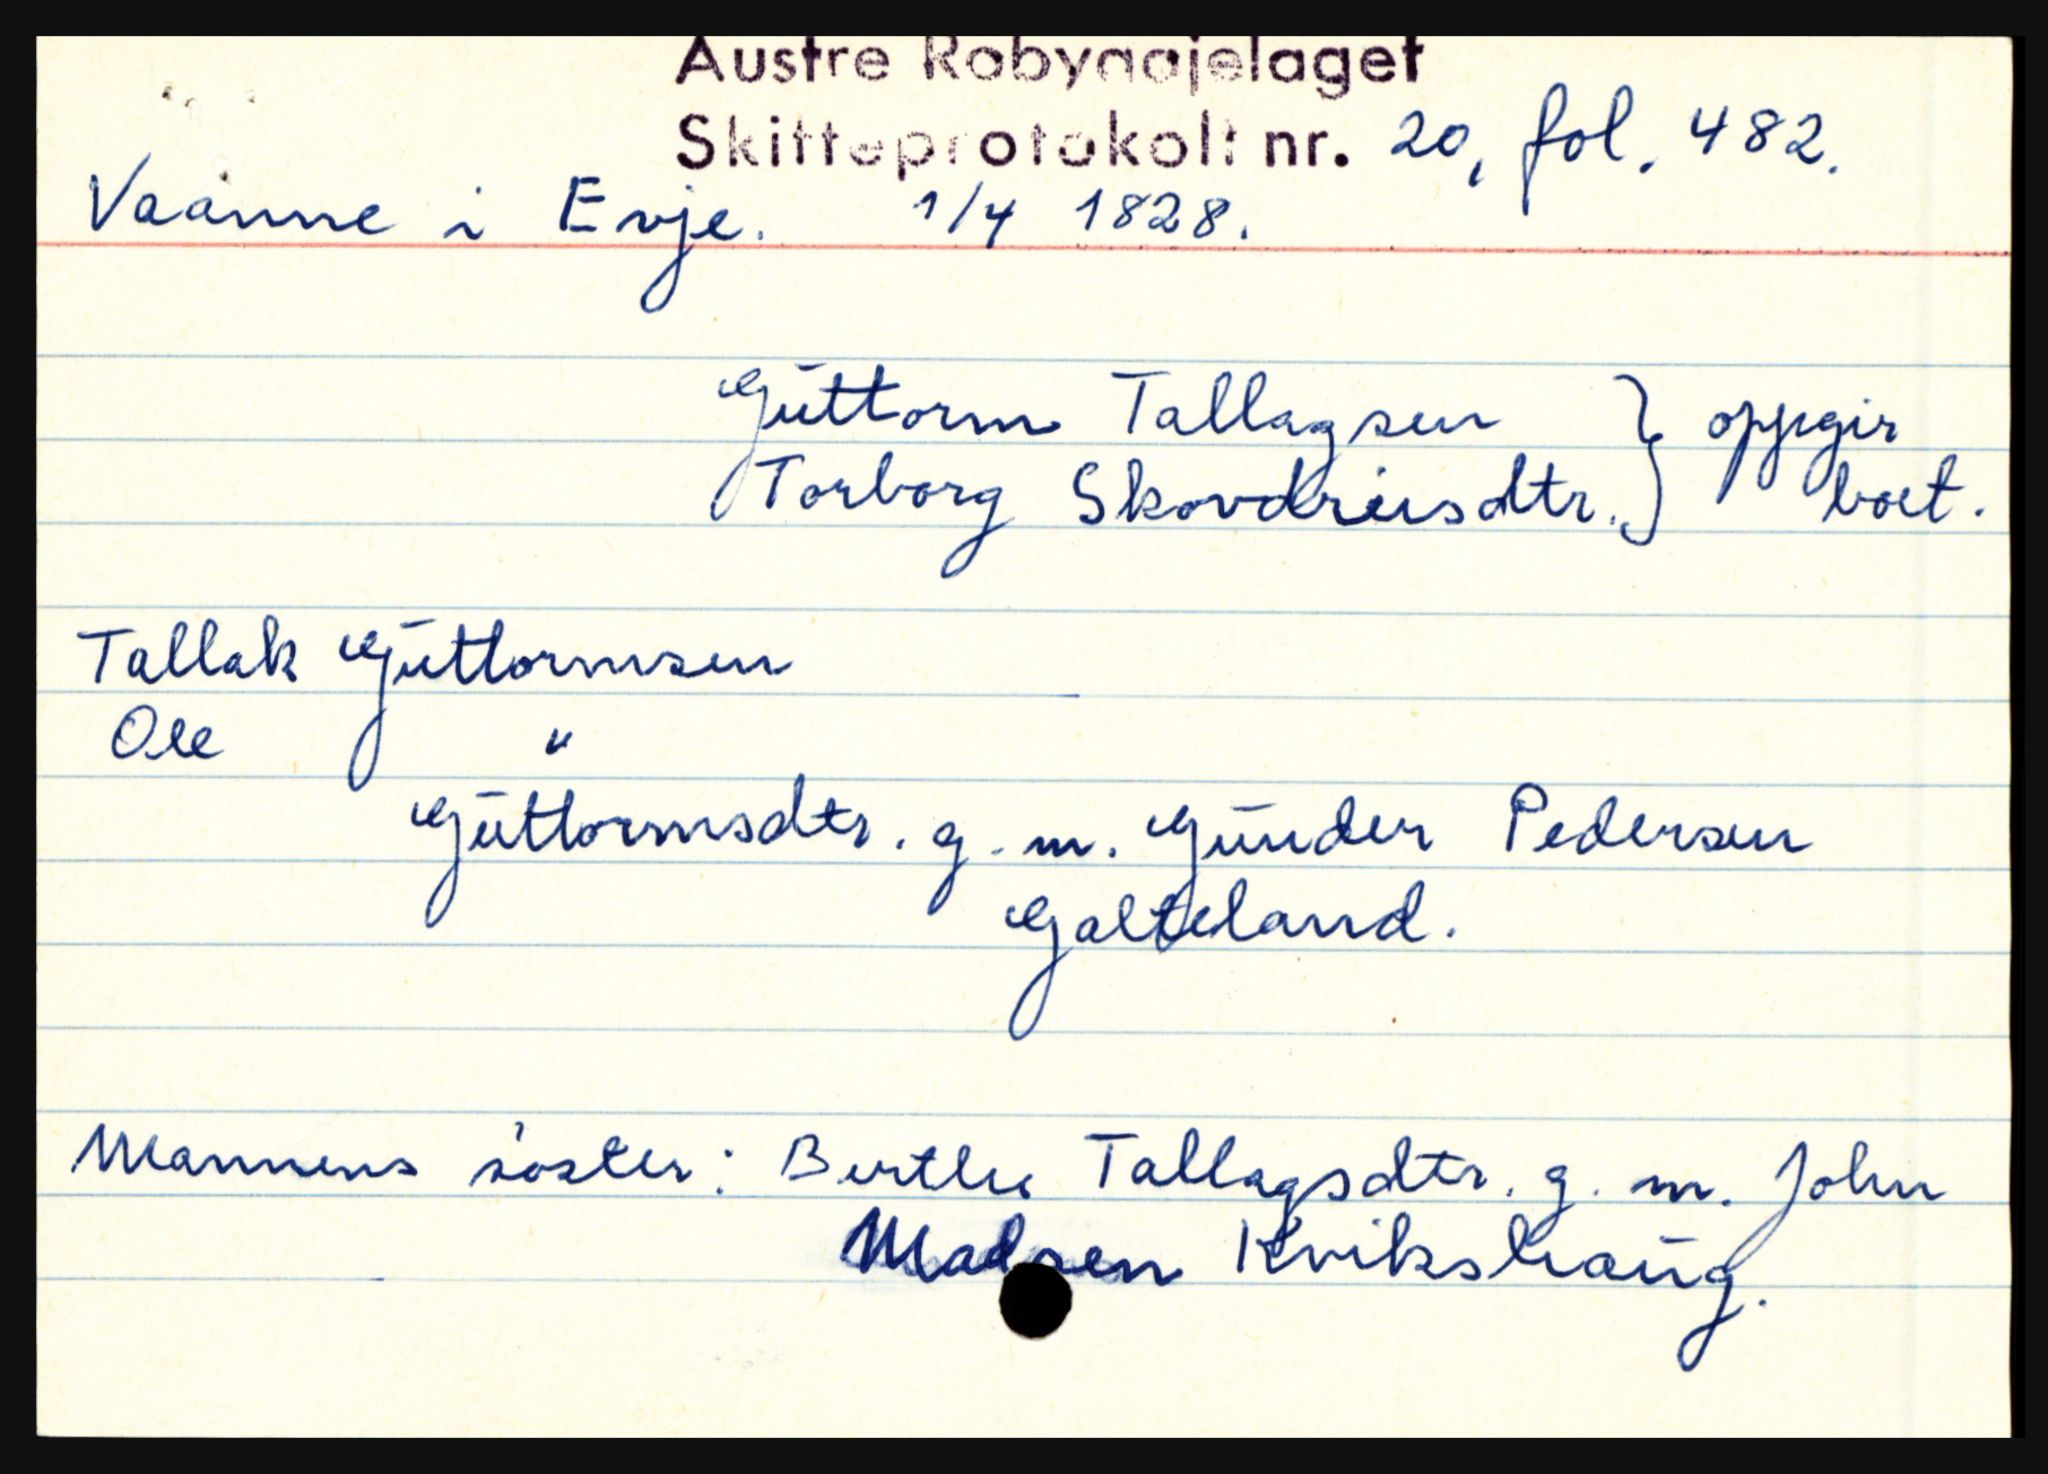 Austre Robyggjelaget
Skifteprotokoll nr. 20, fol. 482.
Vaanne i Evje. 1/4 1828.
Guttorm Tallagsen } oppgir
Torborg Skovdriusdtr. } boet.
Tallak Guttormsen
Ole "
Guttormsdtr. g. m. Gunder Pedersen
Galteland.
Mannens søster: Berthe Tallagsdtr. g. m. John
Madsen Kvikshaug.